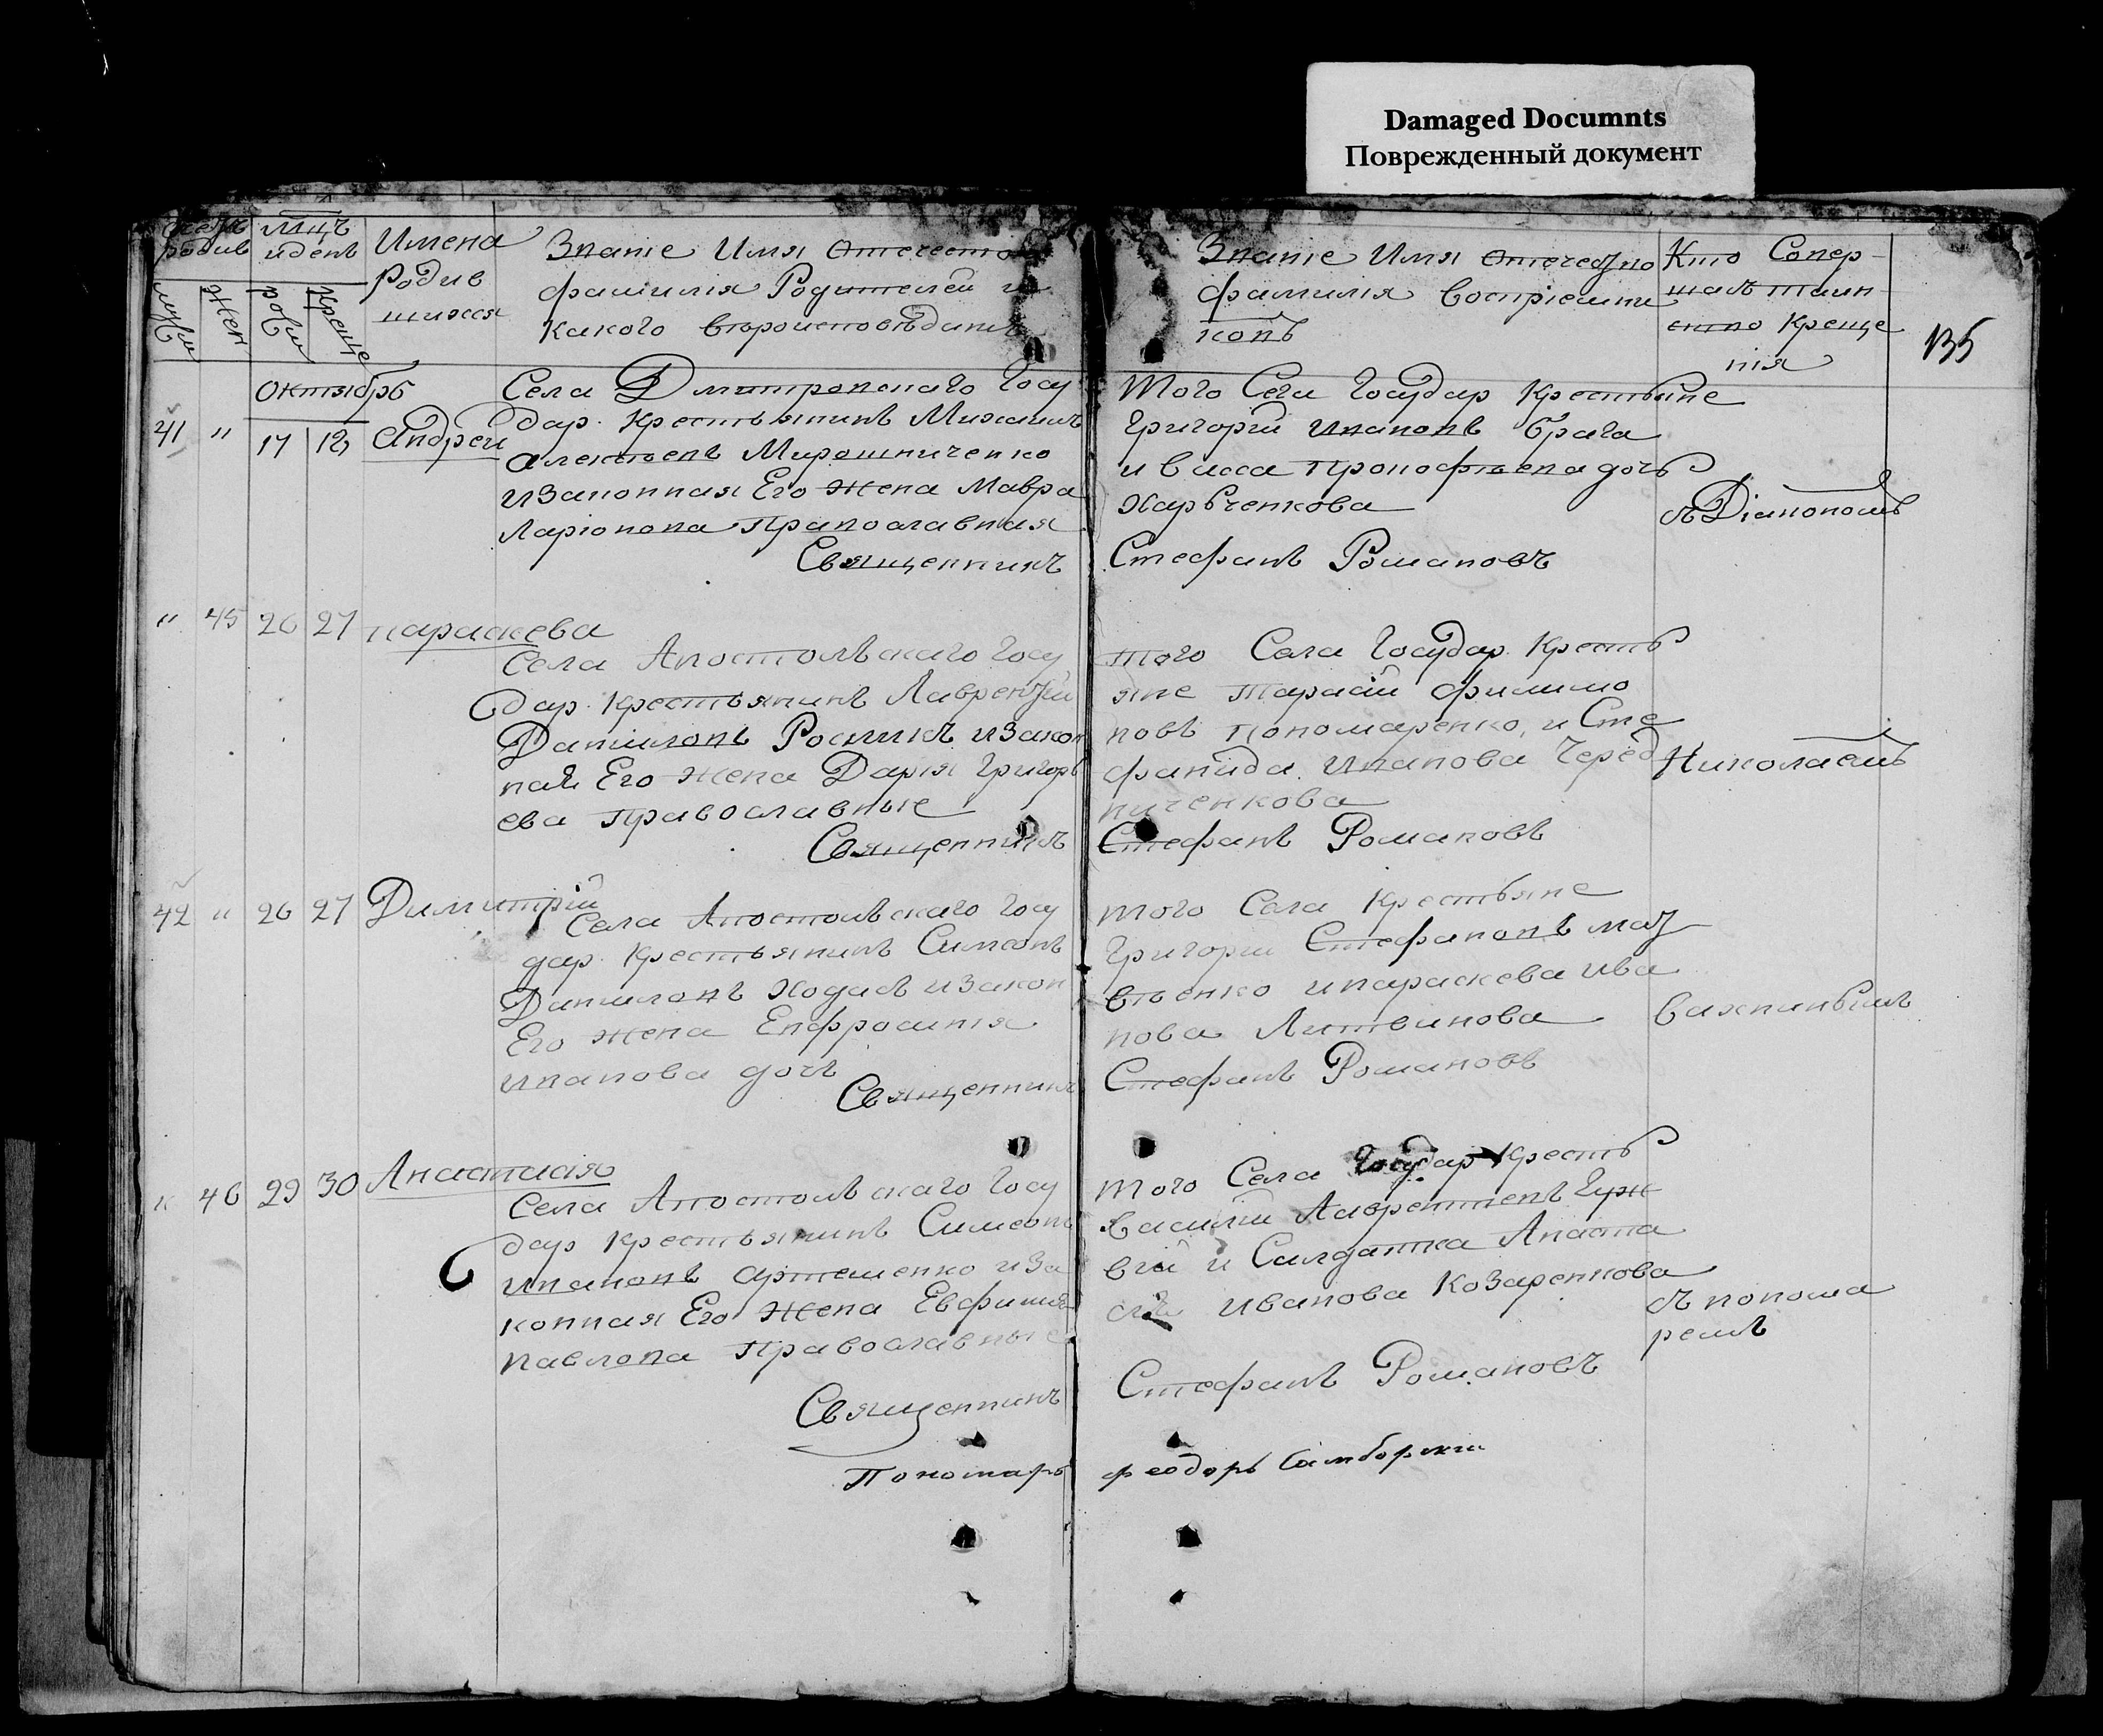 Damaged Documnts
Поврежденный документ
родив
Мцъ
и день
Имена
Родив
шихся
муж
Жен
рож
Креще
Званіе Имя Отечество
фамилія Родителей и
какого вероисповеданія
Званіе Имя Отечество
фамилія Воспріемни
ковъ
Кто Совер
шалъ таин
ство Креще
нія
135
Октябрь
41 " 17 18 Андрей
Села Дмитровскаго Госу
дар. Крестьянинъ Михаилъ
Алексѣевъ Мирошниченко
и Законная Его Жена Мавра
Ларіонова Православная
Священникъ
Того Села Государ Крестьяне
Григорій Ивановъ Брага
и Васса Прокофѣева дочь
Харьченкова
Стефанъ Романовъ
съ Діакономъ
" 45 26 27 параскева
Села Апостольскаго Госу
дар. Крестьянинъ Лаврентій
Даниловъ Росликъ и закон
ная Его Жена Дарія Григорь
ева Православные
Священникъ
того Села Государ. Кресть
яне Тарасій Филимо
новъ Пономаренко, и Сте
фанида Иванова Черед
ниченкова
Стефанъ Романовъ
Николаемъ
42 " 26 27 Димитрій
Села Апостольскаго Госу
дар. Крестьянинъ Симеонъ
Даниловъ Ходасъ и закон
Его Жена Евфросинія
Иванова дочь
Священникъ
того Села Крестьяне
Григорій Стефановъ мат
вѣенко и параскева Ива
нова Литвинова
Стефанъ Романовъ
" 46 29 30 Анастасія
Села Апостольскаго Госу
дар Крестьянинъ Симеонъ
Ивановъ Артеменко и За
конная Его Жена Евфимія
Павлова Православные
Священникъ
того Села Государ Кресть
Василій Лаврентіевъ Гуж
вій и Салдатка Анаста
сія Иванова Козаренкова
Стефанъ Романовъ
съ понома
ремъ
Пономарь
Феодоръ Самборскій